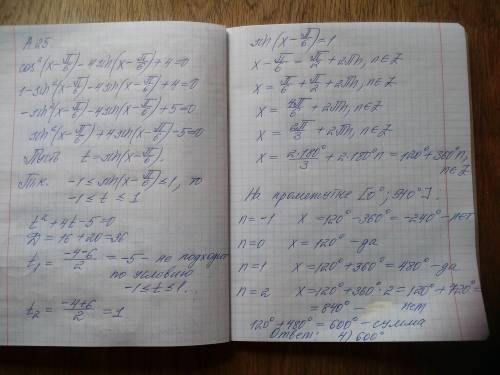 А 25
cos²(x-π/6)-4sin(x-π/6)+4=0
1-sin²(x-π/6)-4sin(x-π/6)+4=0
-sin²(x-π/6)-4sin(x-π/6)+5=0
sin²(x-π/6)+4sin(x-π/6)-5=0
t=sin(x-π/6).
Т.к. -1≤sin(x-π/6)≤1, то
-1≤t≤1
t²+4t-5=0
D=16+20=36
t₁=(-4-6)/2=-5- не подходит
по условию
-1≤t≤1.
t₂=(-4+6)/2=1
sin(x-π/6)=1
x-π/6=π/2+2πn, n∈Z
x=π/6+π/2+2πn, n∈Z
x=4π/6+2πn, n∈Z
x=2π/3+2πn, n∈Z
x=2·180°/3+2·180°n=120°+360°n,
n∈Z
На промежутке [0°;540°].
n=-1 x=120°-360°=-240°-нет
n=0 x=120°-да
n=1 x=120°+360°=480°-да
n=2 x=120°+360°·2=120°+720°=
=840°- нет
120°+480°=600°-сумма
Ответ: 4) 600°